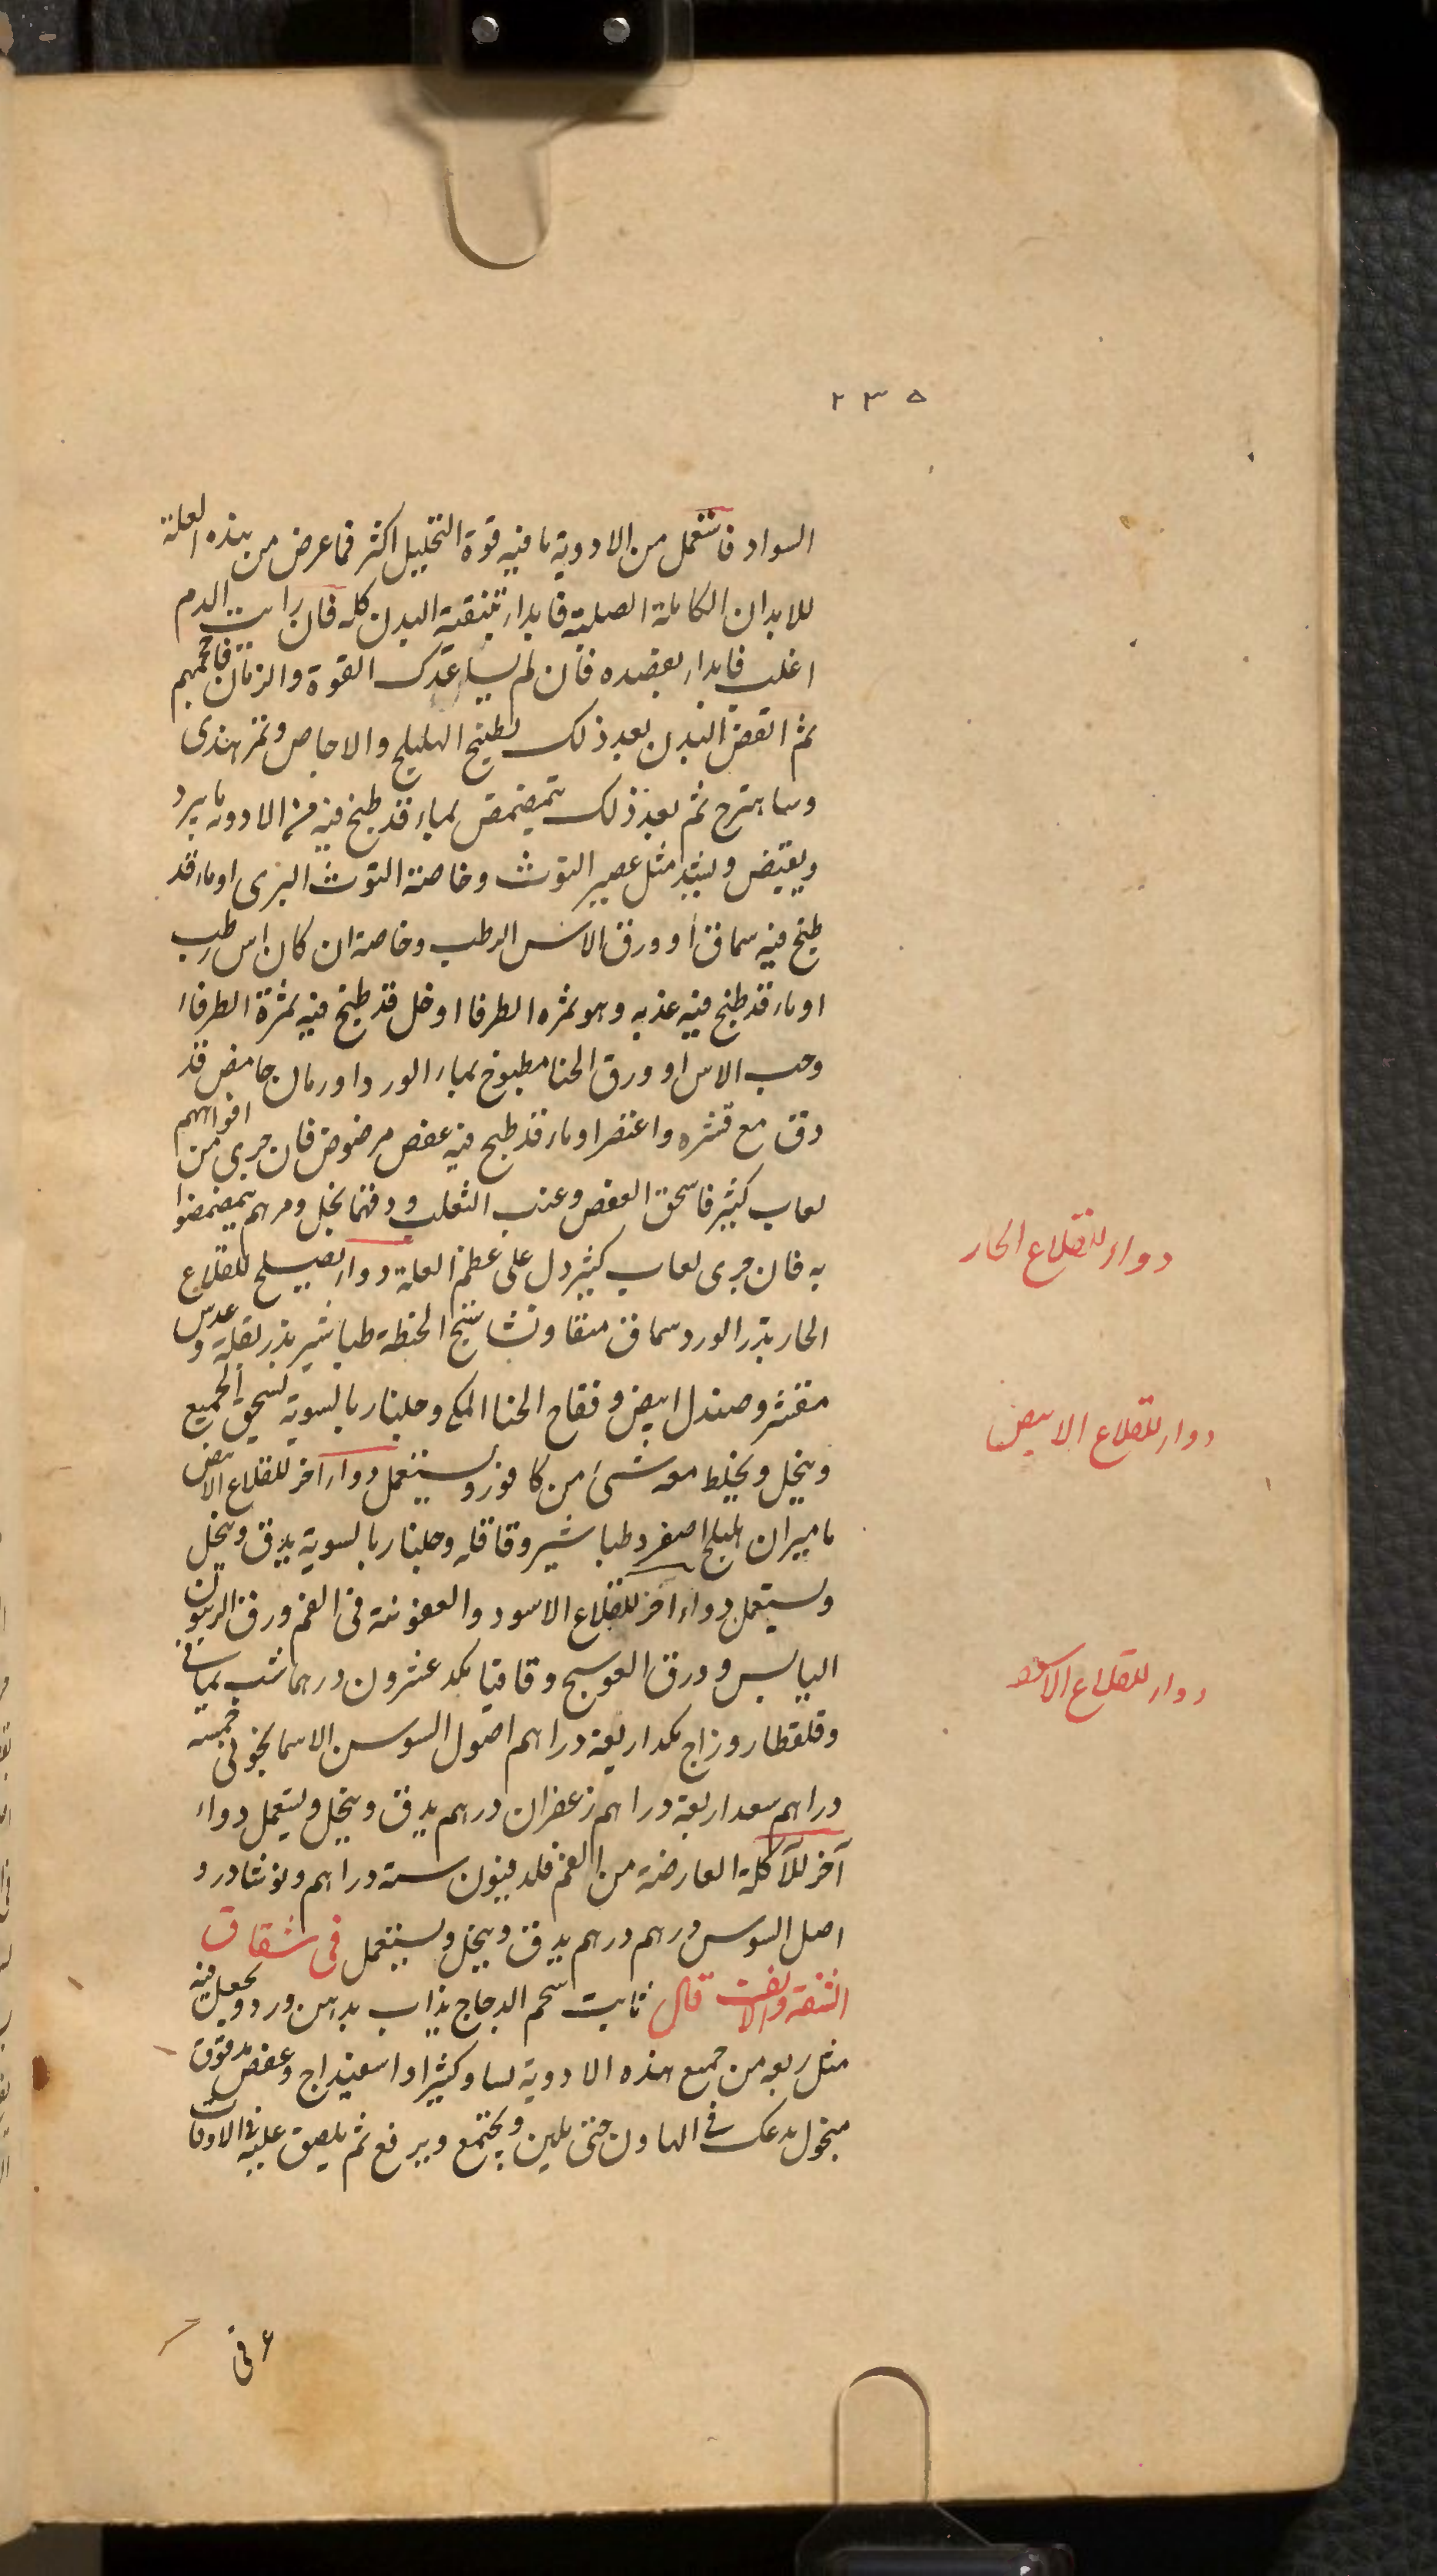 ٢٣٥
السواد فاستعمل من الادوية ما فيه قوة التحليل اكثر فما عرض من هذه العلة
للابدان الكاملة الصلبة فابداء بتنقية البدن كله فان رايت الدم
اغلب فابداء بفصده فان لم يساعدك القوة والزمان فاحجمهم
ثم انفض البدن بعد ذلك بطبيخ الهليلج والاجاص وتمر هندى
وساهترج ثم بعد ذلك يتمضمض بماء قد طبخ فيه من الادوية ما يبرد
ويقبض ويشد مثل عصير التوث وخاصة التوث البرى او ماء قد
طبخ فيه سماق او ورق الاس الرطب وخاصة ان كان اس رطب
او ماء قد طبخ فيه عذبه وهو ثمره الطرفا او خل قد طبخ فيه ثمرة الطرفاء
وحب الاس او ورق الحنا مطبوخ بماء الورد او رمان حامض قد
دق مع قشره واعتصر او ماء قد طبخ فيه عفص مرضوض فان جرى من افواههم
لعاب كثير فاسحق العفص وعنب الثعلب ودفهما بخل ومرهم يتمضمضوا
به فان جرى لعاب كثير دل على عظم العلة دواء يصلح للقلاع
الحار بزر الورد سماق منقا ونشاستج الحنطة طباشير بزر بقلة وعدس
مقشر وصندل ابيض وفقاح الحنا المكى وجلنار بالسوية يسحق الجميع
وينخل ويخلط معه شىء من كافور ويستعمل دواء اخر للقلاع الابيض
ماميران هليلج اصفر وطباشير وقاقله وجلنار بالسوية يدق وينخل
ويستعمل دواء اخر للقلاع الاسود والعفونة فى الفم ورق الزيتون
اليابس وورق العوسج وقاقيا مكد عشرون درهما شب يمانى
وقلقطار وزاج مكد اربعة دراهم اصول السوسن الاسمانجونى خمسة
دراهم سعد اربعة دراهم زعفران درهم يدق وينخل ويستعمل دواء
آخر للآكلة العارضة من الفم فلدفيون ستة دراهم ونوشادر و
اصل السوس درهم درهم يدق وينخل ويستعمل فى شقاق
الشفة والانف قال ثابت شحم الدجاج يذاب بدهن ورد ويجعل فيه
مثل ربعه من جميع هذه الادوية نسا وكثيرا واسفيداج وعفص مدقوق
منخول يدعك فى الهاون حتى يلين ويجتمع ويرفع ثم يلصق عليه فى الاوقات
دواء للقلاع الحار
دواء للقلاع الابيض
دواء للقلاع الاسود